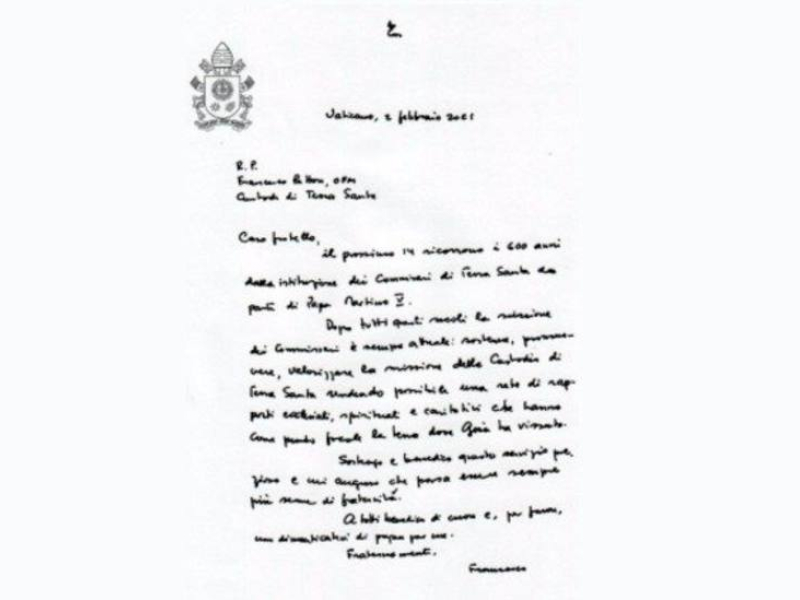 Vaticano, 2 febbraio 2021
R. P.
Francesco Patton, OFM
Custode di Terra Santa
Caro fratello,
il prossimo 14 ricorrono i 600 anni
dalla istituzione dei Commissari di Terra Santa da
parte di Papa Martino V.
Dopo tutti questi secoli la missione
dei Commissari è sempre attuale: sostenere, promuo-
vere, valorizzare la missione della Custodia di
Terra Santa rendendo possibile una rete di rap-
porti ecclesiali, spirituali e caritativi che hanno
come punto focale la terra dove Gesù ha vissuto.
Sostengo e benedico questo servizio pre-
zioso e mi auguro che possa essere sempre
più seme di fraternità.
A tutti benedico di cuore e, per favore,
non dimenticatevi di pregare per me.
Fraternamente,
Francesco